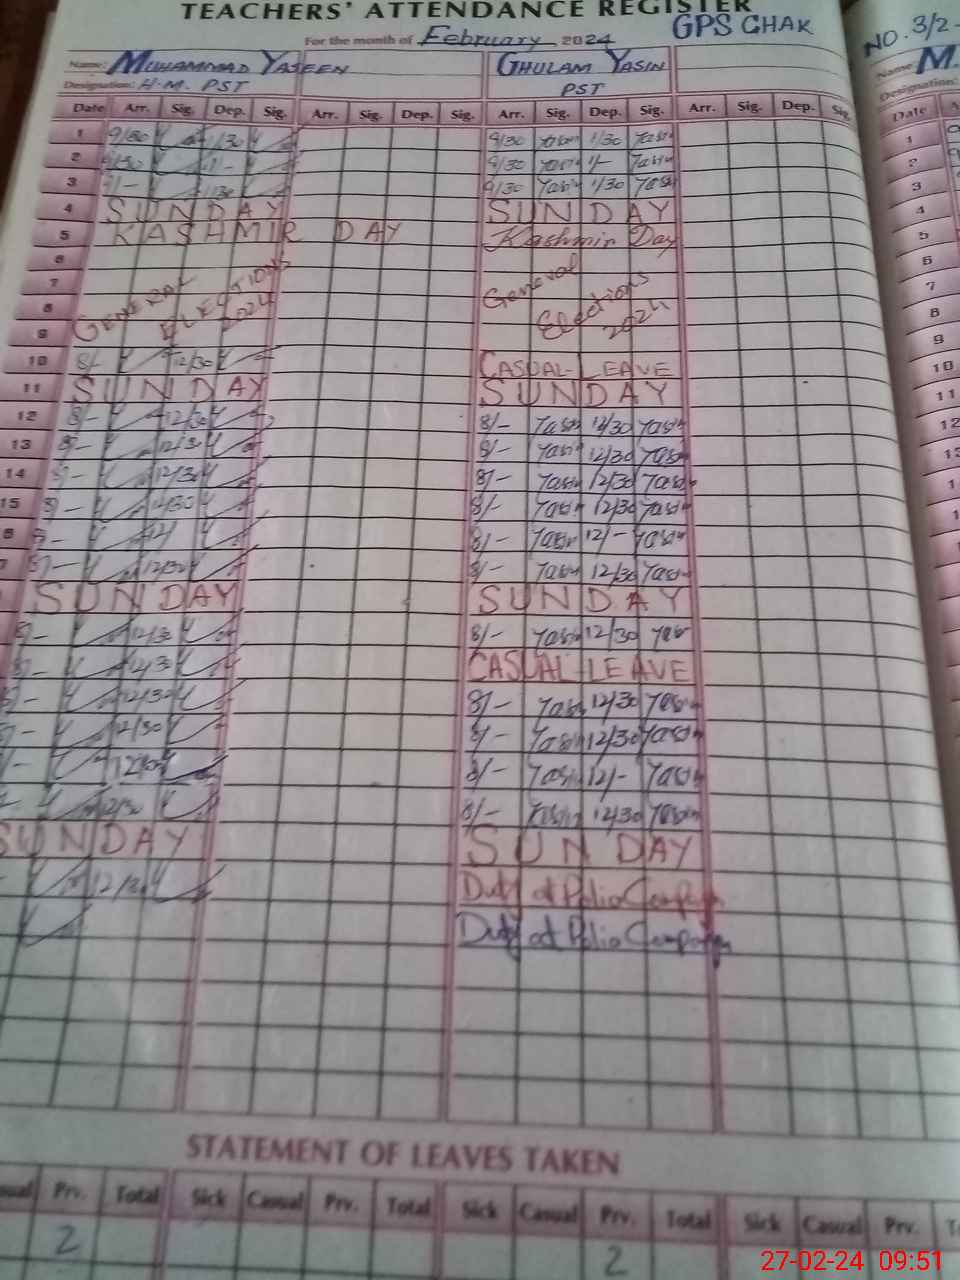 TEACHERS' ATTENDANCE REGISTER
For the month of February 2024 GPS CHAK NO. 3/2-
Name: MUHAMMAD YASEEN GHULAM YASIN Name: M.
Designation: H.M. PST PST Designation:
Date Arr. Sig. Dep. Sig. Arr. Sig. Dep. Sig. Arr. Sig. Dep. Sig. Arr. Sig. Dep. Sig. Date
1 9/30 1/30 9/30 Yasin 1/30 Yasin 1
2 9/30 11/- 9/30 Yasin 11/- Yasin 2
3 9/- 1/30 9/30 Yasin 1/30 Yasin 3
4 SUNDAY SUNDAY 4
5 KASHMIR DAY Kashmir Day 5
6 6
7 GENERAL General 7
8 ELECTIONS Elections 8
9 2024 2024 9
10 8/- 12/30 CASUAL-LEAVE 10
11 SUNDAY SUNDAY 11
12 8/- 12/30 8/- Yasin 12/30 Yasin 12
13 8/- 12/30 8/- Yasin 12/30 Yasin
14 8/- 12/30 8/- Yasin 12/30 Yasin
15 8/- 12/30 8/- Yasin 12/30 Yasin
6 8/- 12/ 8/- Yasin 12/- Yasin
7 8/- 12/30 8/- Yasin 12/30 Yasin
SUNDAY SUNDAY
8/- 12/30 8/- Yasin 12/30 Yasin
8/- 12/30 CASUAL-LEAVE
8/- 12/30 8/- Yasin 12/30 Yasin
12/30 8/- Yasin 12/30 Yasin
12/30 8/- Yasin 12/- Yasin
12/30 8/- Yasin 12/30 Yasin
SUNDAY SUNDAY
12/30 Duty at Polio Campaign
Duty at Polio Campaign
STATEMENT OF LEAVES TAKEN
Prv. Total Sick Casual Prv. Total Sick Casual Prv. Total Sick Casual Prv.
2 2
27-02-24 09:51